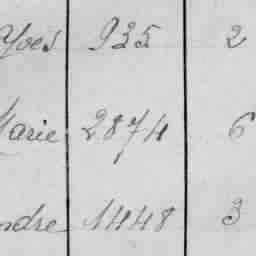 Yves 935 2
Marie 2874 6
ndre 1448 3